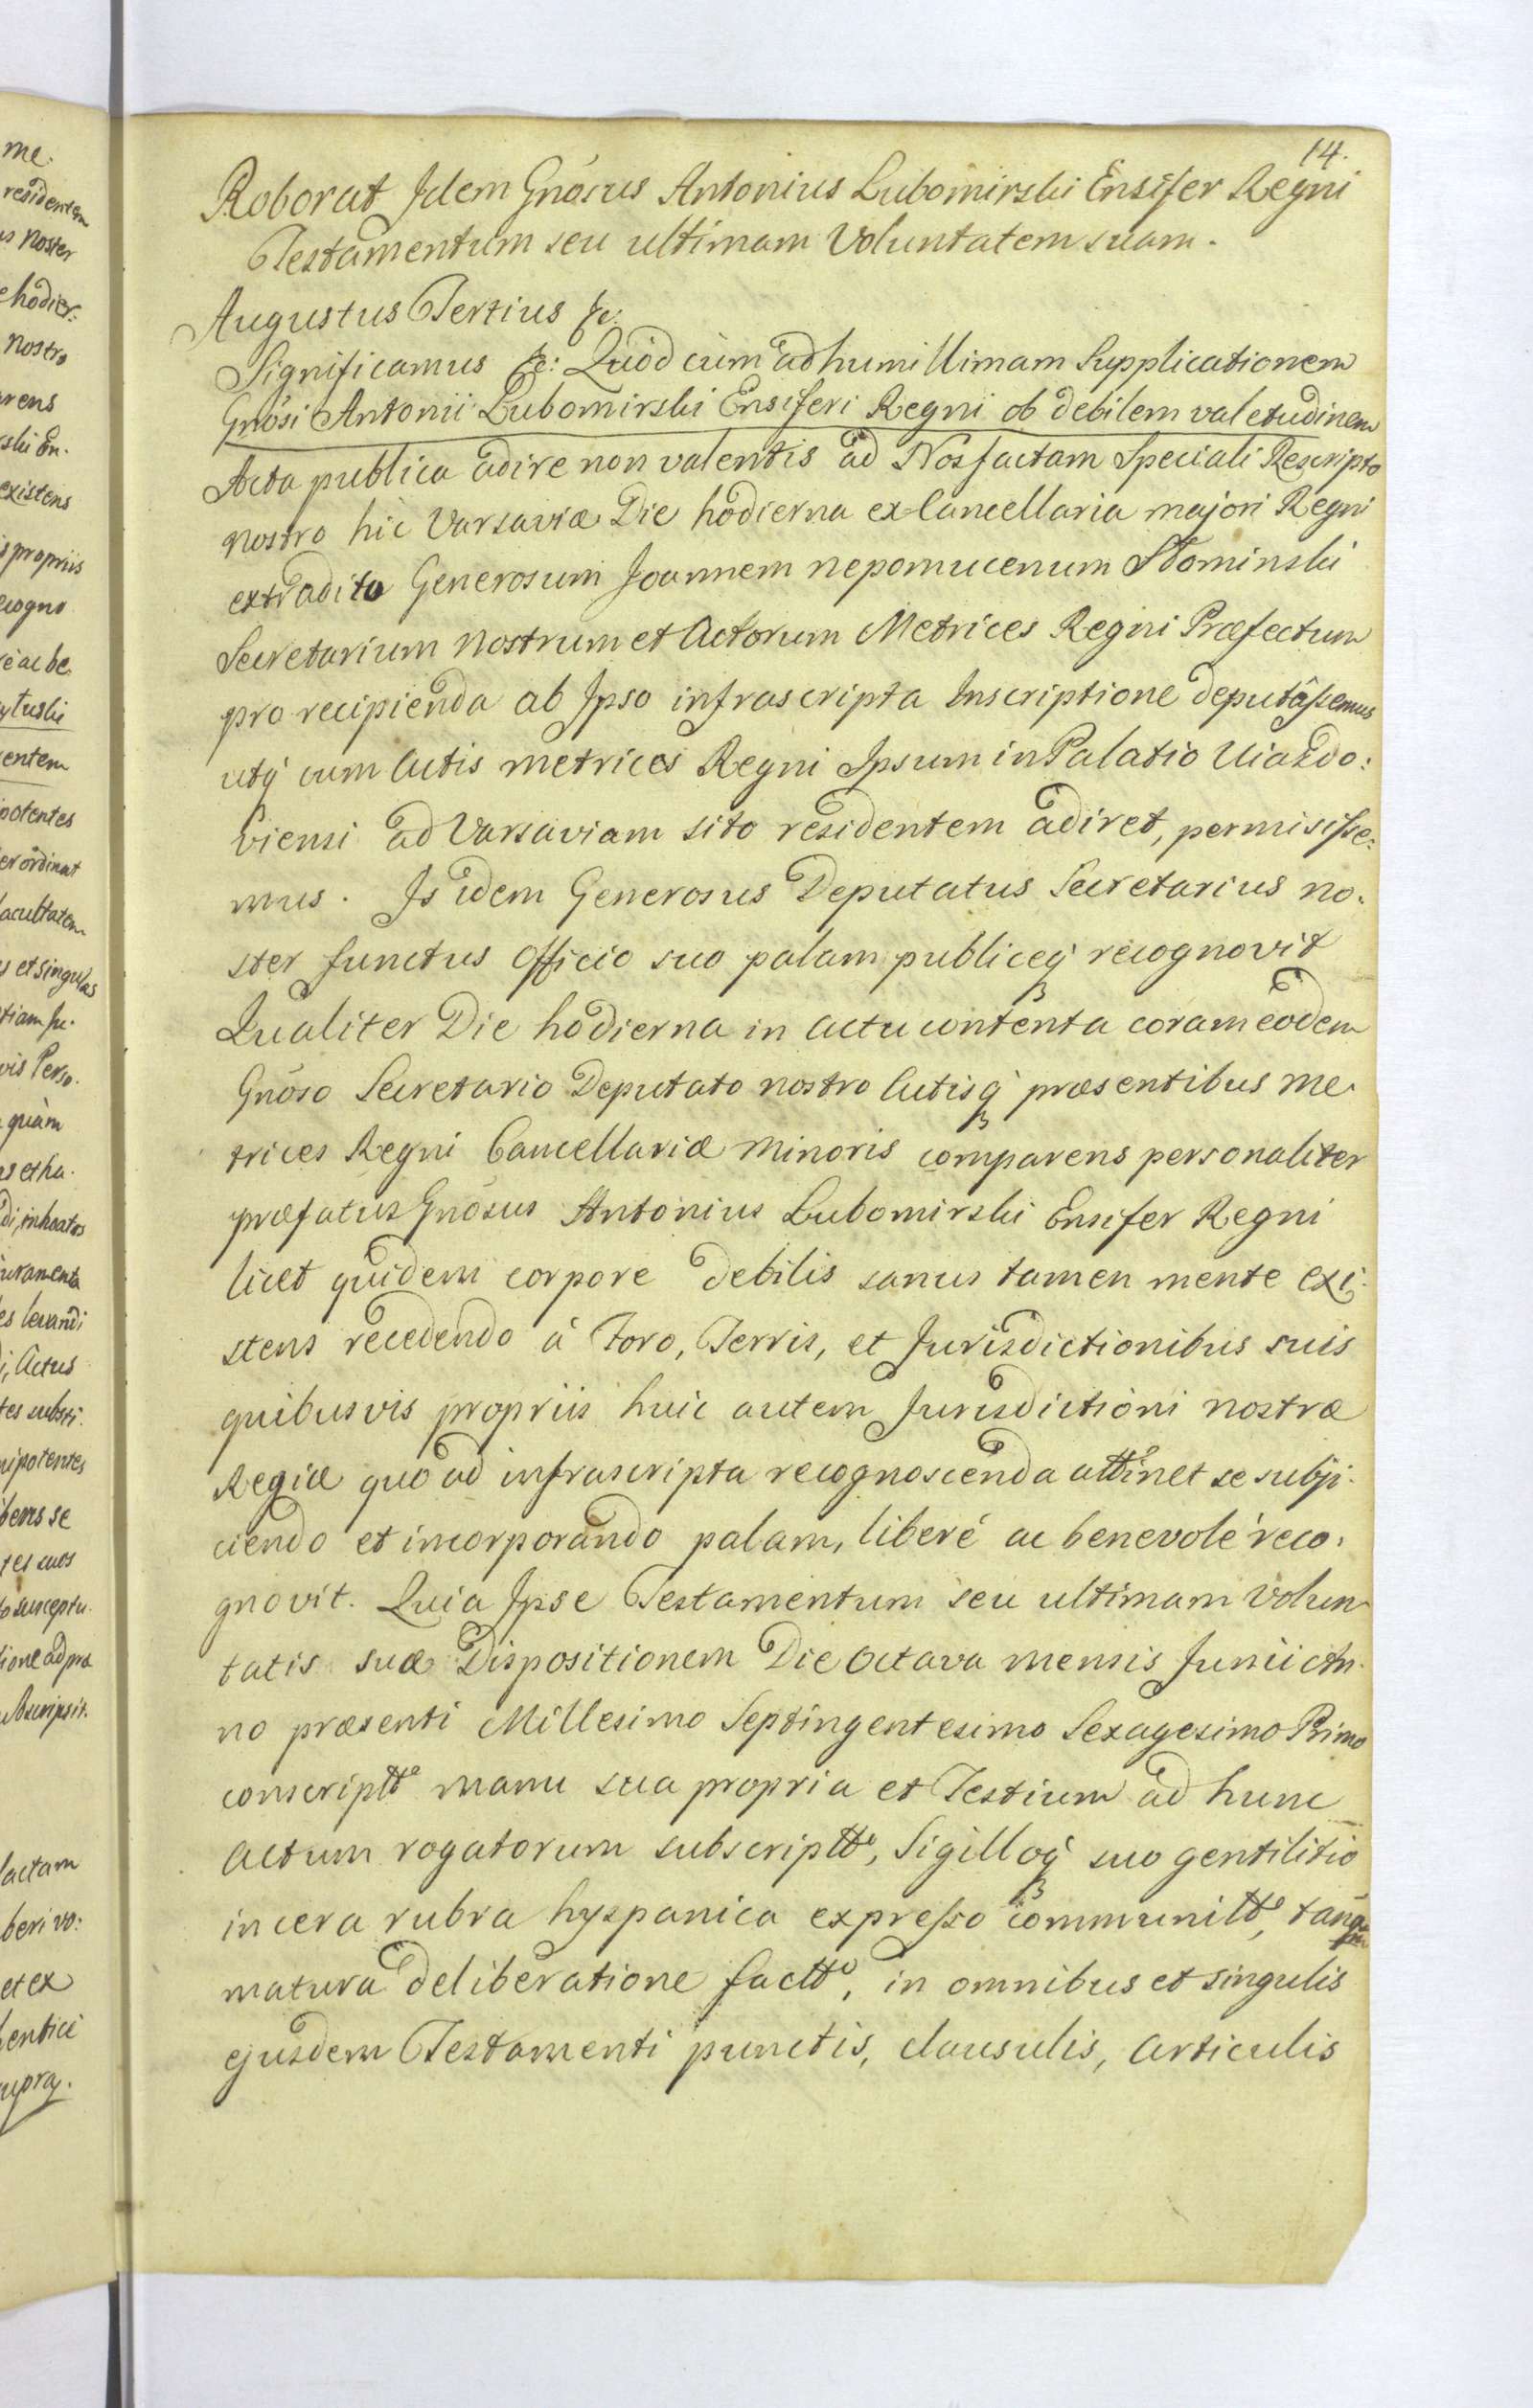 14.
Roborat Idem Gnõsus Antonius Lubomirski Ensifer Regni
Testamentum seu ultimam Voluntatem suam.
Augustus Tertius &c:
Significamus &c: Quòd cùm ad humillimam Supplicationem
Gnõsi Antonii Lubomirski Ensiferi Regni ob debilem valetudinem
Acta publica adire non valentis ad Nos factam Speciali Rescripto
nostro hic Varsaviæ Die hodierna ex Cancellaria majori Regni
extradito Generosum Joannem nepomucenum Słominski
Secretarium nostrum et Actorum Metrices Regni Præfectum
pro recipienda ab Ipso infrascripta Inscriptione deputâssemus
utq3 cum Actis metrices Regni Ipsum in Palatio Uiazdo:
viensi ad Varsaviam sito residentem adiret, permisisse:
mus. Is idem Generosus Deputatus Secretarius no:
ster functus Officio suo palam publiceq3 recognovit
Qualiter Die hodierna in Actu contenta coram eodem
Gnõso Secretario Deputato nostro Actisq3 præsentibus me
trices Regni Cancellariæ Minoris comparens personaliter
præfatus Gnõsus Antonius Lubomirski Ensifer Regni
licet quidem corpore debilis sanus tamen mente exi:
stens recedendo à Foro, Terris, et Jurisdictionibus suis
quibusvis propriis huic autem Jurisdictioni nostræ
Regiæ quo ad infrascripta recognoscenda attinet se subji:
ciendo et incorporando palam, liberè ac benevolè reco:
gnovit. Quia Ipse Testamentum seu ultimam Volun
tatis suæ Dispositionem Die Octava mensis Junii An:
no præsenti Millesimo Septingentesimo Sexagesimo Primo
conscriptt° manu sua propria et Testium ad hunc
Actum rogatorum subscriptt°, Sigilloq3 suo gentilitio
in cera rubra hyspanica expresso communitt°, tanqm
matura deliberatione factt°, in omnibus et singulis
ejusdem Testamenti punctis, clausulis, Articulis
me.
residentem
noster
hodier:
nostro
existens
propriis
entem
potentes
ordinat
et singulas
vis Perso.
quàm
et ha.
levandi
Actus
substi:
potentes
se
suos
susceptu
lactam
beri vo:
et ex